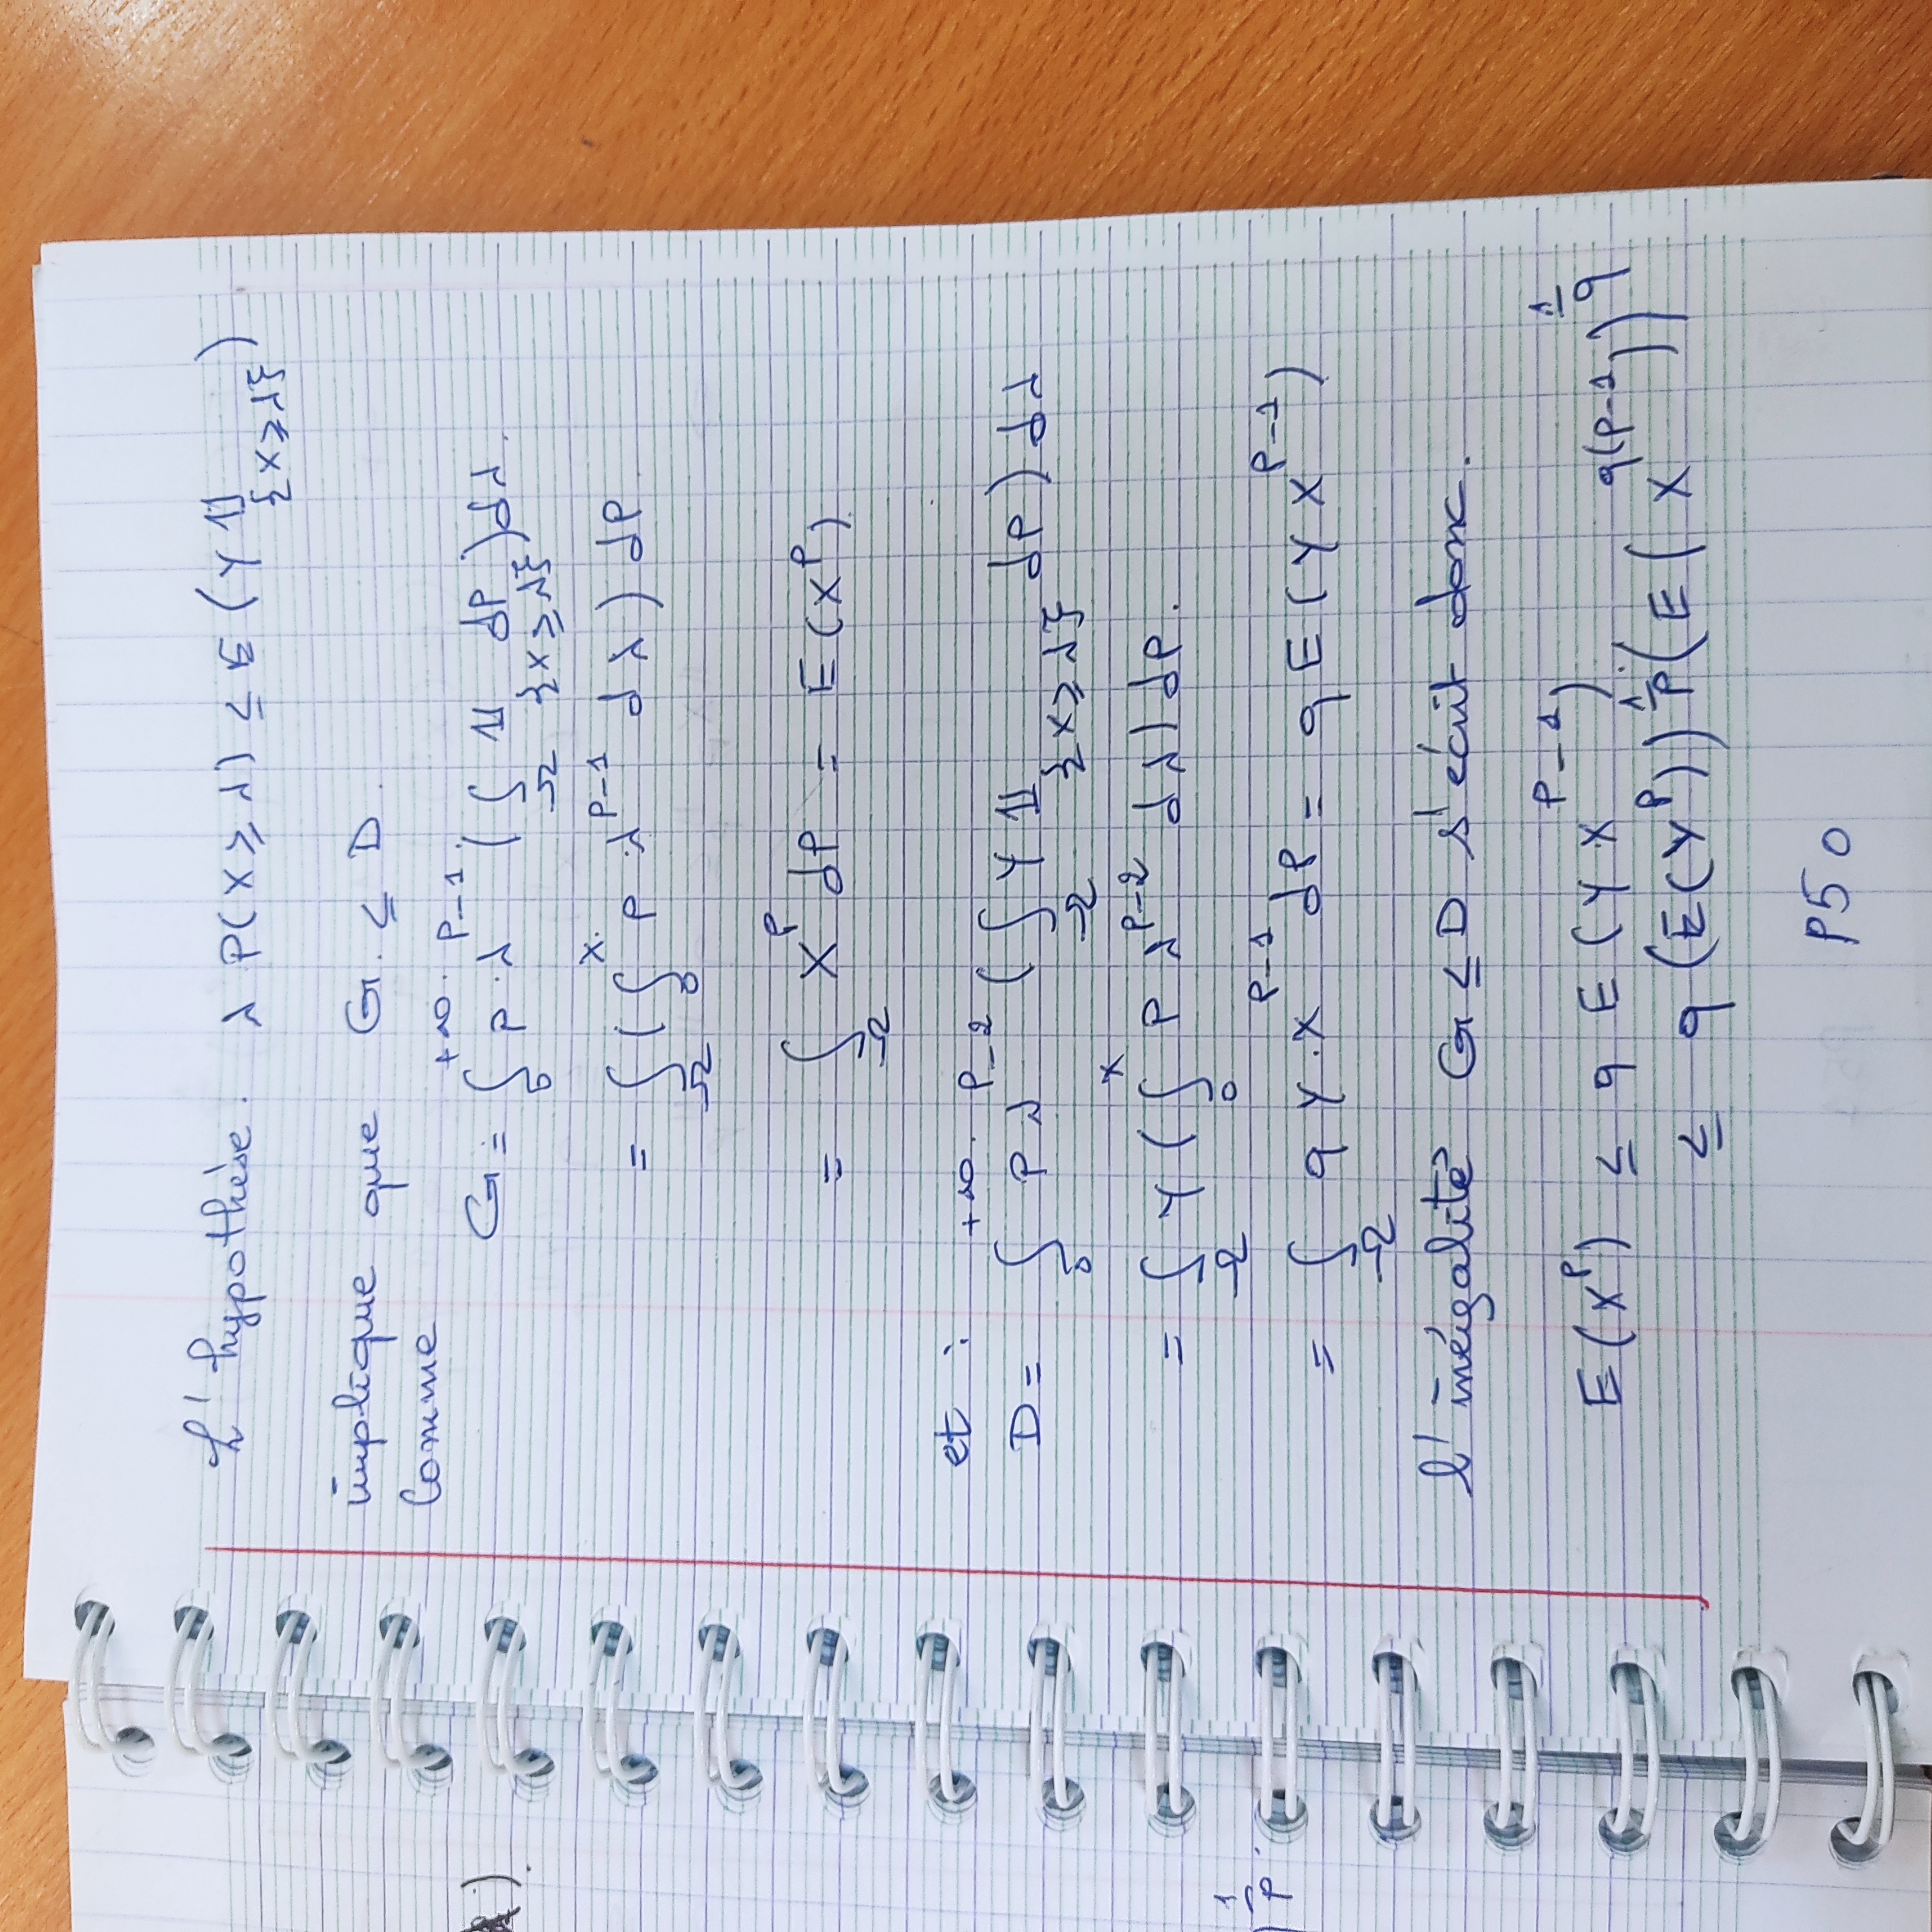 L'hypothèse. λ P(X ≥ λ) ≤ E (Y 𝟙_{X ≥ λ})
implique que G. ≤ D.
Comme
G = ∫_0^{+∞} p·λ^{p-1} (∫_Ω 𝟙_{X ≥ λ} dP) dλ.
= ∫_Ω (∫_0^X p·λ^{p-1} dλ) dP
= ∫_Ω X^p dP = E(X^p).
et :
D = ∫_0^{+∞} p λ^{p-2} (∫_Ω Y 𝟙_{X ≥ λ} dP) dλ
= ∫_Ω Y (∫_0^X p λ^{p-2} dλ) dP.
= ∫_Ω q Y·X^{p-1} dP = q E(Y X^{p-1})
l'inégalité G ≤ D s'écrit donc.
E(X^p) ≤ q E(Y X^{p-1})
≤ q (E(Y^p))^{1/p} (E(X^{q(p-1)}))^{1/q}
P50
).
)^{1/p}.